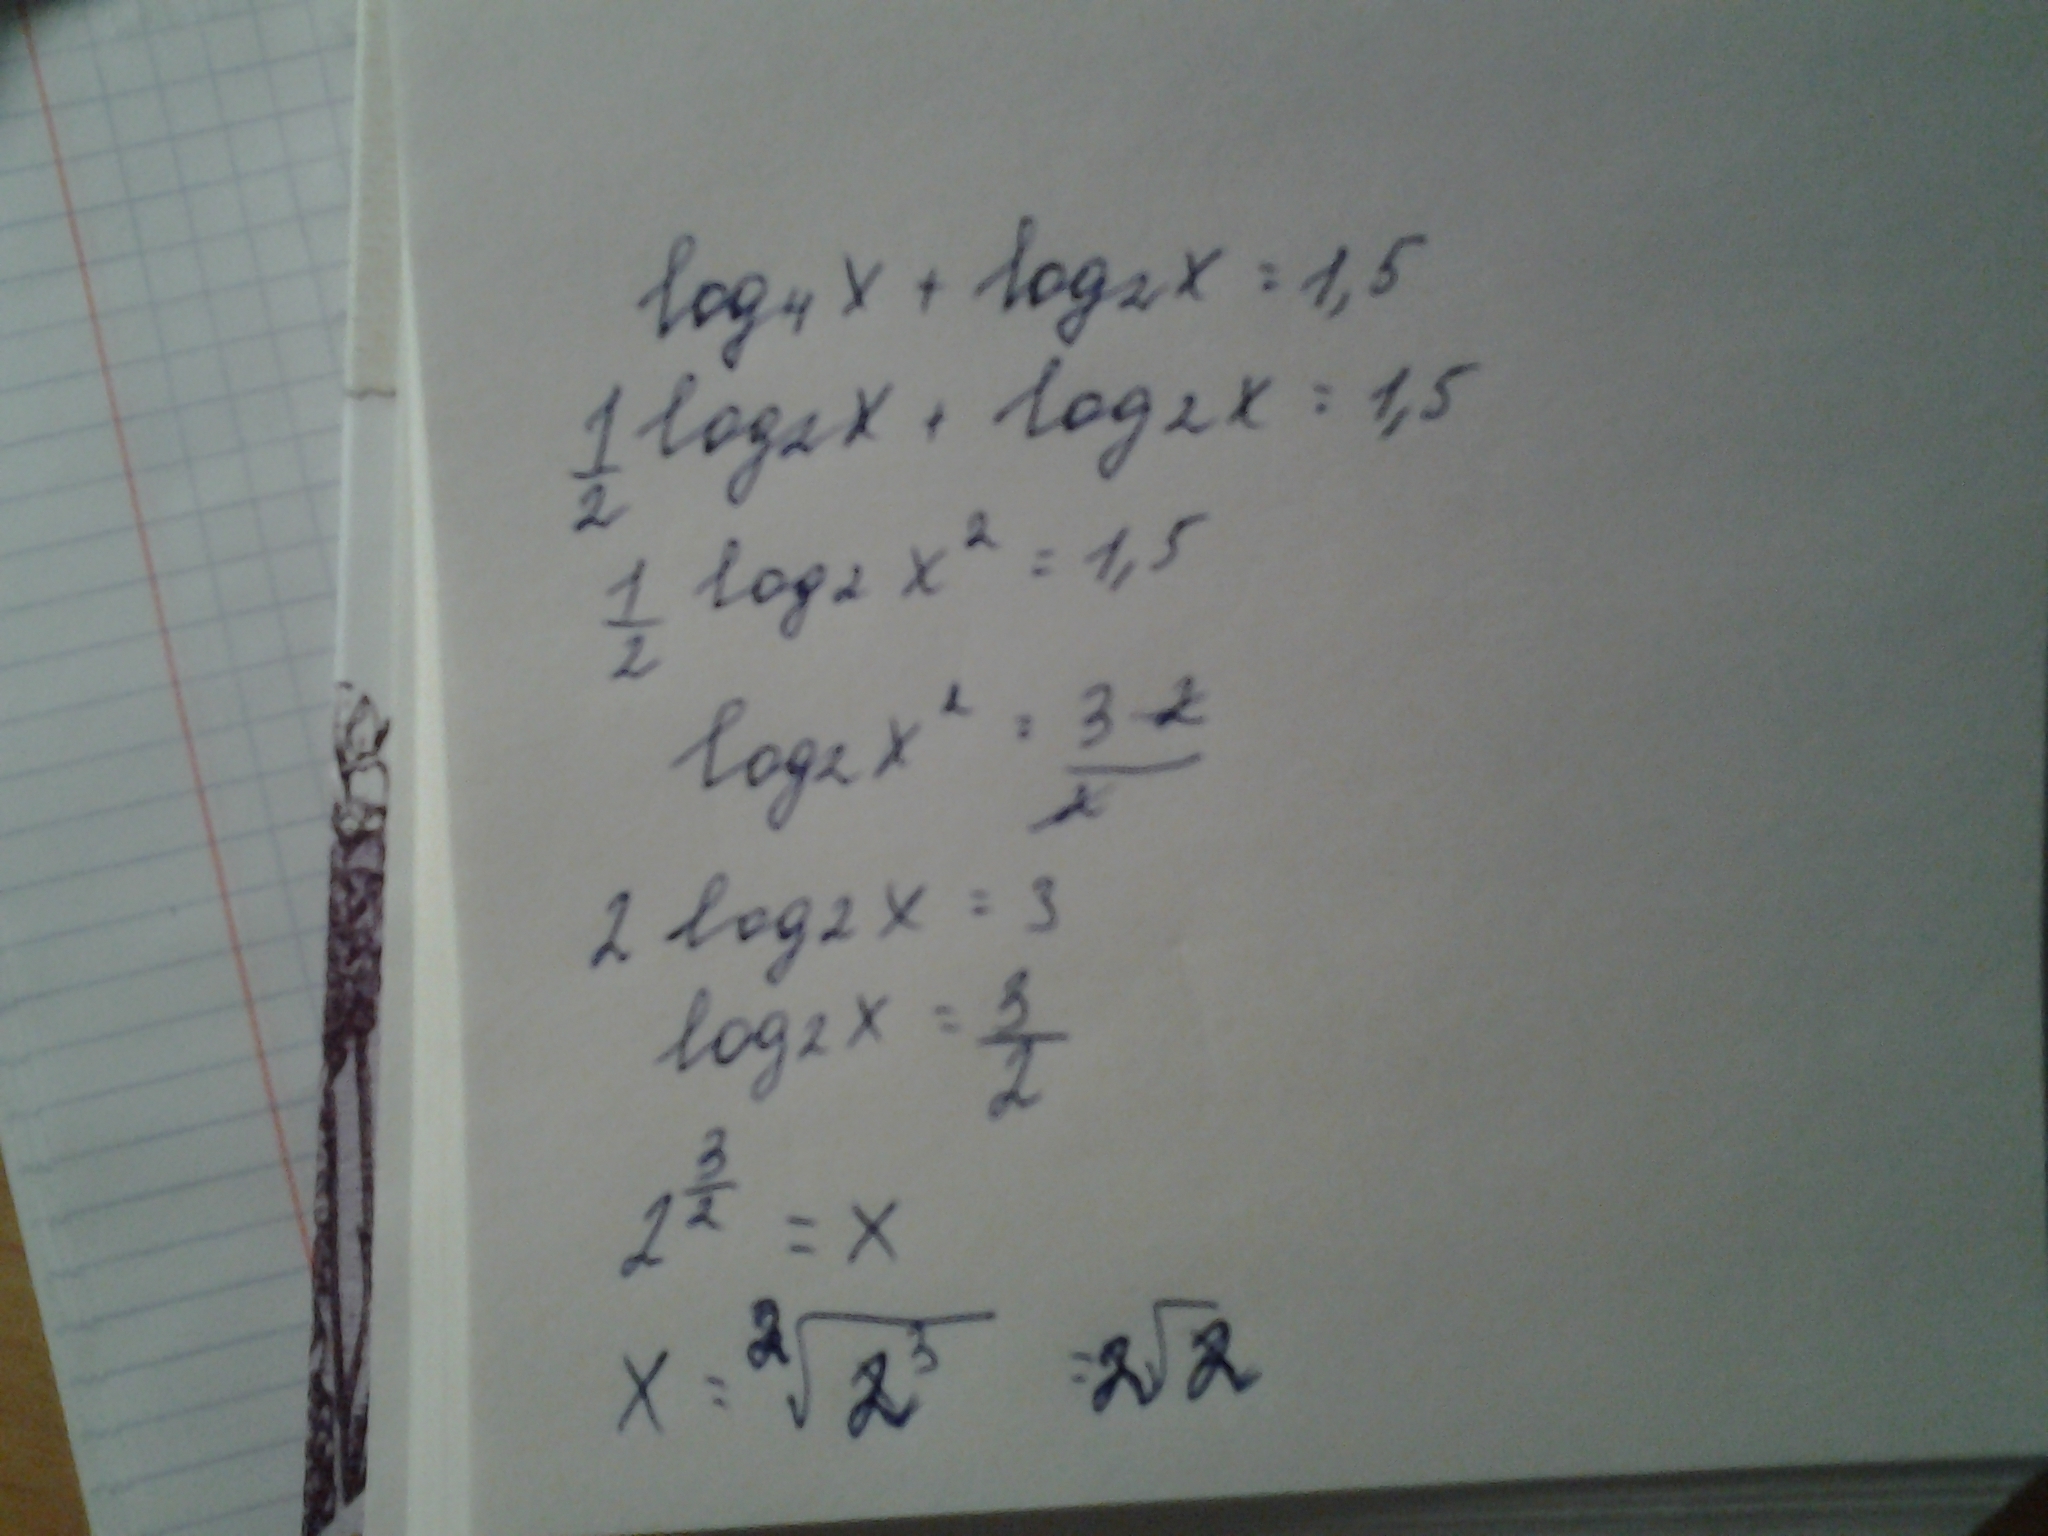 log₄x + log₂x = 1,5
1/2 log₂x + log₂x = 1,5
1/2 log₂x² = 1,5
log₂x² = 3·2/2
2 log₂x = 3
log₂x = 3/2
2^(3/2) = x
x = ²√(2³) = 2√2